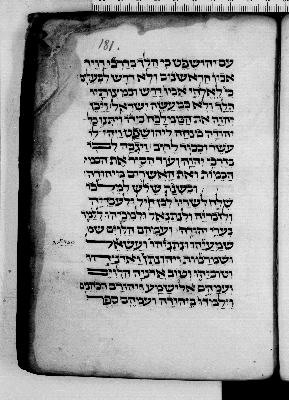 181.
עם יהושפט כי הלך בדרכי דויד
אביו הראשנים ולא דרש לבעלים
כי לאלהי אביו דרש ובמצותיו
הלך ולא כמעשה ישראל ויכן
יהוה את הממלכה בידו ויתנו כל
יהודה מנחה ליהושפט ויהי לו
עשר וכבוד לרב ויגבה לבו
בדרכי יהוה ועוד הסיר את הבמו
הבמות ואת האשרים מיהודה
ובשנת שלוש למלכו
שלח לשריו לבן חיל ולעבדיה
ולזכריה ולנתנאל ולמיכיהו ללמד
בערי יהודה ועמהם הלוים שמ
שמעיהו ונתניהו ועשאל
ושמרימות ויהונתן ואדניהו
וטוביהו וטוב אדניה הלוים
ועמהם אלישמע ויהורם הכהנים
וילמדו ביהודה ועמהם ספר